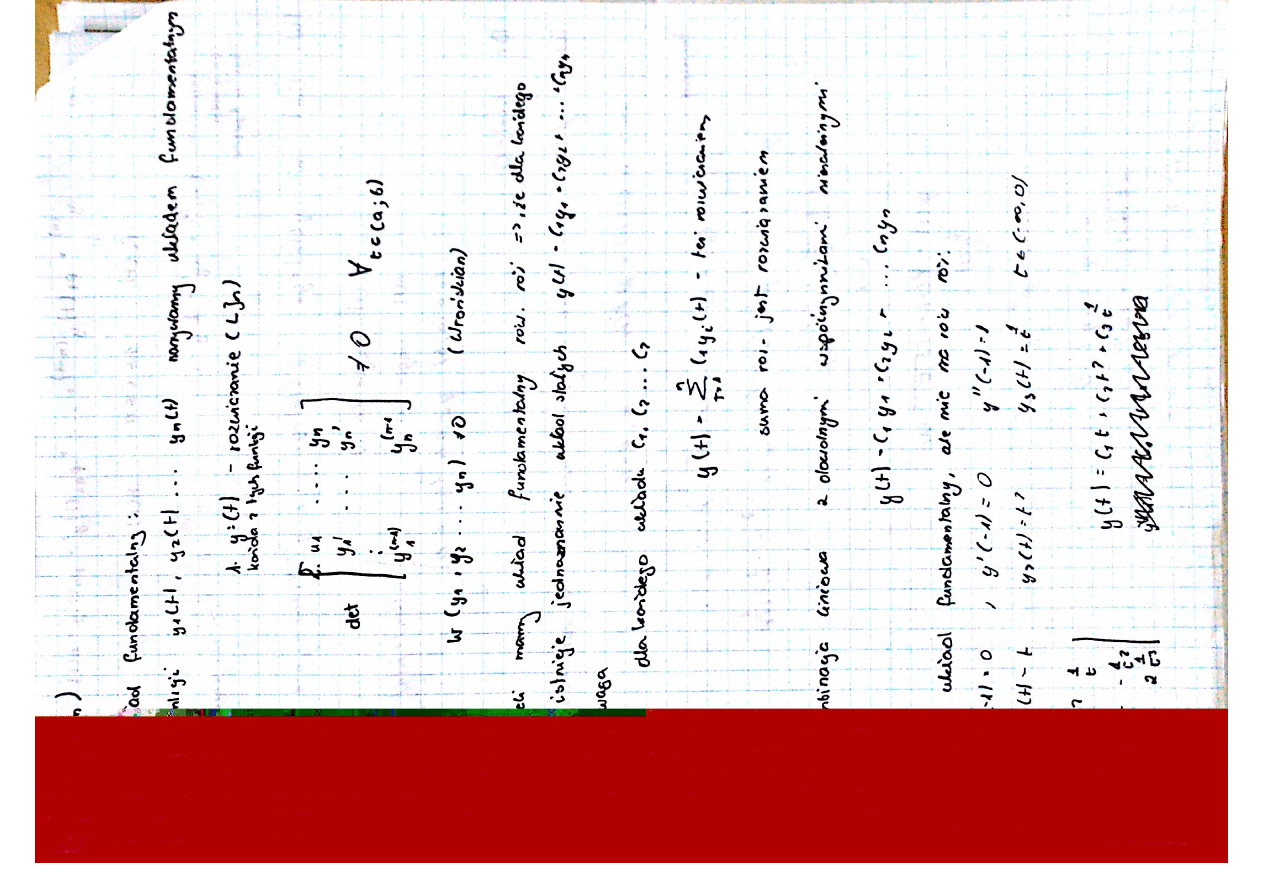 n)
ad fundamentalny:
nkcji y₁(t), y₂(t) ... yₙ(t) nazywamy układem fundamentalnym
1. yᵢ(t) - rozwiązanie (LJn)
każda z tych funkcji
det [ 2. y₁ .... yₙ
y₁' .... yₙ'
⋮
y₁⁽ⁿ⁻¹⁾ yₙ⁽ⁿ⁻¹⁾ ] ≠ 0 ∀ t∈(a;b)
W (y₁, y₂ ... yₙ) ≠ 0 (Wrońskian)
eli mamy układ fundamentalny rów. róż => że dla każdego
istnieje jednoznacznie układ stałych y(t) = C₁y₁ + C₂y₂ + ... + Cₙyₙ
waga
dla każdego układu C₁, C₂ ... C₂
y(t) = Σ C₁yᵢ(t) - też rozwiązaniem,
suma roz. jest rozwiązaniem
binacja liniowa z dowolnymi współczynnikami
y(t) = C₁y₁ + C₂y₂ + ... Cₙyₙ
układ fundamentalny, ale nie ma rów róż.
-1) = 0 , y'(-1) = 0 y''(-1) = 1
(t) = t y₂(t) = t² y₃(t) = 1/t t ∈ (-∞, 0)
² 1/t y(t) = C₁t + C₂t² + C₃ 1/t
- 1/t²
2 1/t³ |